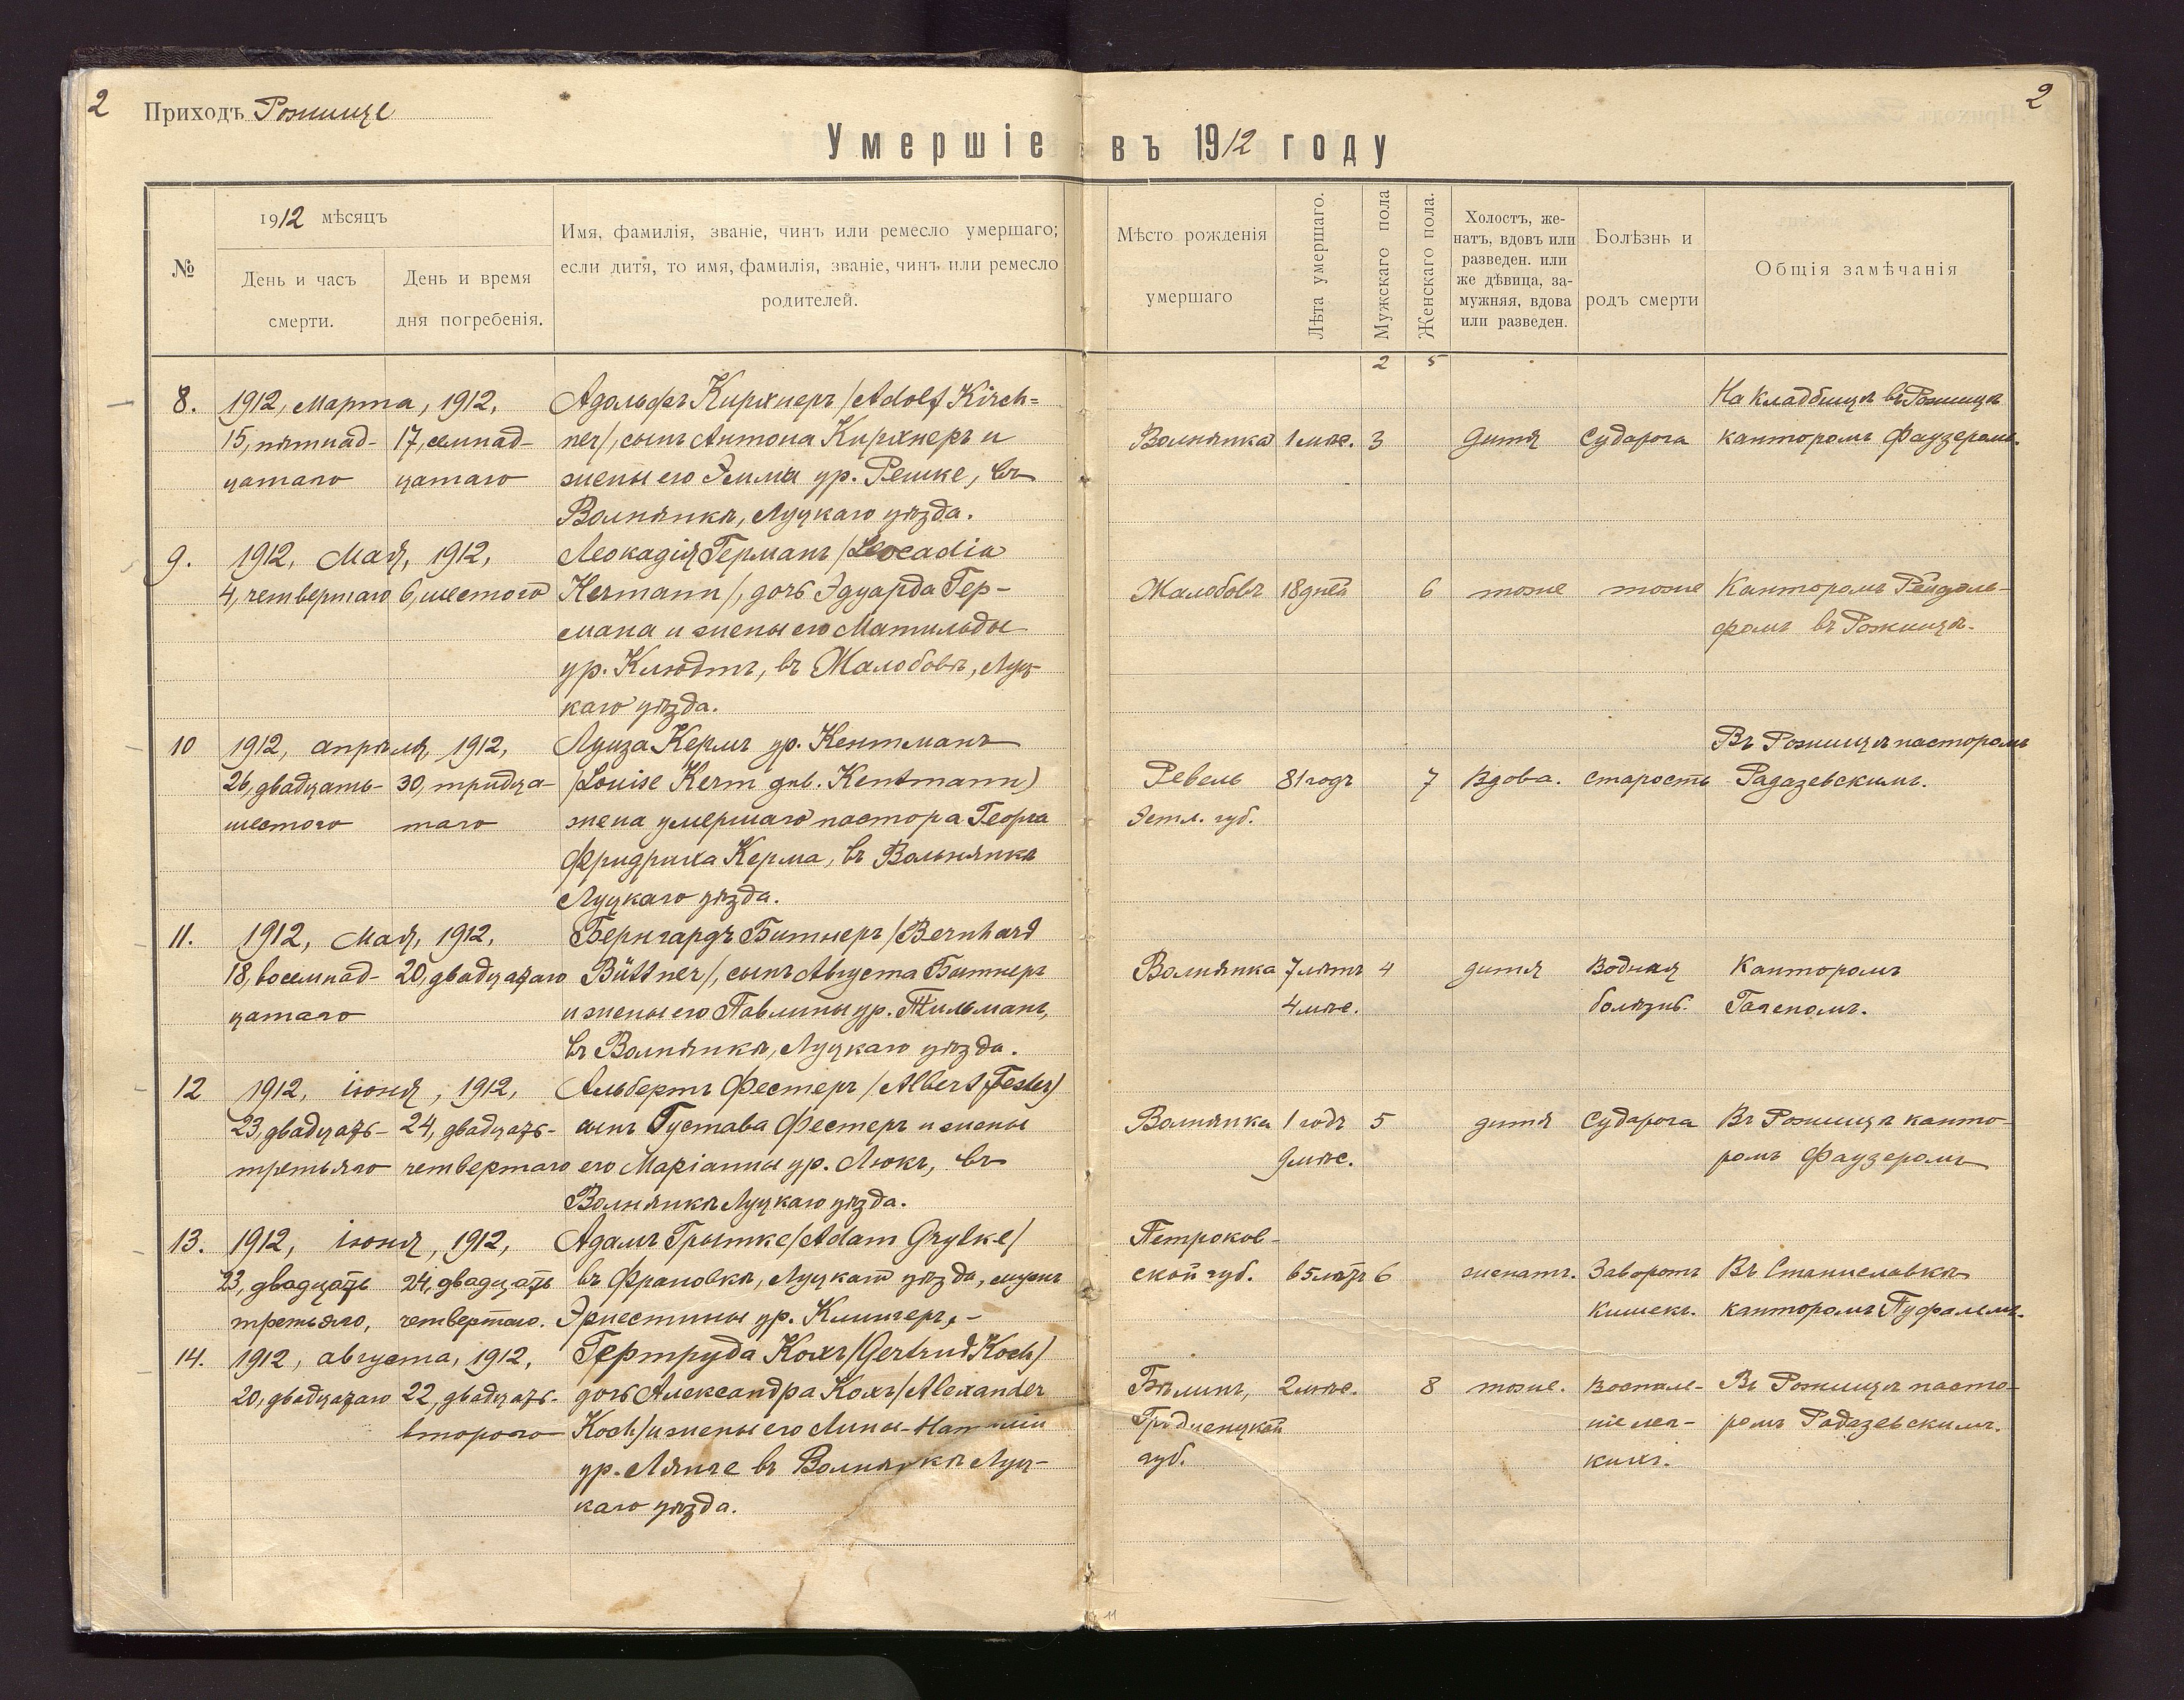 2 Приходъ Рожище
2
Умершіе въ 1912 году
№
1912 мѣсяцъ
День и часъ
смерти.
День и время
дня погребенія.
Имя, фамилія, званіе, чинъ или ремесло умершаго;
если дитя, то имя, фамилія, званіе, чинъ или ремесло
родителей.
Мѣсто рожденія
умершаго
Лѣта умершаго.
Мужскаго пола
Женскаго пола.
Холостъ, же-
натъ, вдовъ или
разведен. или
же дѣвица, за-
мужняя, вдова
или разведен.
Болѣзнь и
родъ смерти
Общія замѣчанія
2 5
8. 1912, Марта, 1912, Адольфъ Кирхнеръ /Adolf Kirch= На кладбищѣ въ Рожищѣ
15, пятнад- 17, семнад- ner/, сынъ Антона Кирхнеръ и Волнянка 1 мѣс. 3 дитя Сударога канторомъ Фаузеромъ.
цатаго цатаго жены его Эмма ур. Решке, въ
Волнянкѣ, Луцкаго уѣзда.
9. 1912, Мая, 1912, Леокадія Германъ /Leocadia
4, четвертаго 6, шестого Hermann/, дочь Эдуарда Гер- Жалобовъ 18 дней 6 тоже тоже Канторомъ Рейдель-
мана и жены его Матильды фомъ въ Рожищѣ.
ур. Клюдтъ, въ Жалобовѣ, Луц-
каго уѣзда.
10 1912, апрѣля, 1912, Луиза Кермъ ур. Кентманъ Въ Рожищѣ пасторомъ
26, двадцать- 30, тридца- (Louise Kerm geb. Kentmann) Ревель 81 годъ 7 Вдова. старость Радазевскимъ.
шестого таго жена умершаго пастора Георга Эстл. губ.
Фридриха Керма, въ Вольнянкѣ
Луцкаго уѣзда.
11. 1912, Мая, 1912, Бернгардъ Битнеръ /Bernhard
18, восемнад- 20, двадцатаго Büttner/, сынъ Августа Битнеръ Волнянка 7 лѣтъ 4 дитя Водная Канторомъ
цатаго и жены его Павлины ур. Тильманъ, 4 мѣс. болѣзнь.
въ Волнянкѣ, Луцкаго уѣзда.
12 1912, іюня, 1912, Альбертъ Фестеръ /Albert Fester)
23, двадцать- 24, двадцать- сынъ Густава Фестеръ и жены Волнянка 1 годъ 5 дитя Сударога Въ Рожищѣ канто-
третьяго четвертаго его Маріанны ур. Люкъ, въ 9 мѣс. ромъ Фаузеромъ
Волнянкѣ Луцкаго уѣзда.
13. 1912, іюня, 1912, Адамъ Грытке /Adam Grytke/ Петроков-
23, двадцать 24, двадцать въ Франовкѣ, Луцкаго уѣзда, мужъ ской губ. 65 лѣтъ 6 женатъ. Заворотъ Въ Станиславкѣ
третьяго, четвертаго. Эрнестины ур. Клингеръ, - кишекъ. канторомъ Пуфалемъ.
14. 1912, августа, 1912, Гертруда Кохъ /Gertrud Koch/
20, двадцатаго 22, двадцать- дочь Александра Кохъ /Alexander Бѣлинъ, 2 мѣс. 8 тоже. воспале- Въ Рожищѣ пасто-
второго Koch/ и жены его Лины-Наталіи Гродненской ніе лег- ромъ Радазевскимъ.
ур. Лянге въ Волнянкѣ Луц- губ. кихъ.
каго уѣзда.
11